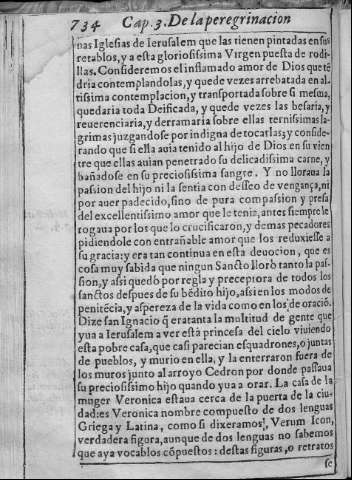 734 Cap. 3. De la peregrinacion
nas Iglesias de Ierusalem que las tienen pintadas en sus
retablos, y a esta gloriosissima Virgen puesta de rodi-
llas. Consideremos el inflamado amor de Dios que tē
dria contemplandolas, y que de vezes arrebatada en al-
tissima contemplacion, y transportada sobre si mesma,
quedaria toda Deificada, y quede vezes las besaria, y
reuerenciaria, y derramaria sobre ellas ternissimas la-
grimas juzgandose por indigna de tocarlas; y conside-
rando que si ella auia tenido al hijo de Dios en su vien
tre que ellas auian penetrado su delicadissima carne, y
bañadose en su preciosissima sangre. Y no lloraua la
passion del hijo ni la sentia con desseo de vengança, ni
por auer padecido, sino de pura compassion y presa
del excellentissimo amor que le tenia, antes siempre le
rogaua por los que lo crucificaron, y demas pecadores
pidiendole con entrañable amor que los reduxiesse a
su gracia: y era tan continua en esta deuocion, que es
cosa muy sabida que ningun Sancto llorò tanto la pas-
sion, y assi quedò por regla y preceptora de todos los
sanctos despues de su bēdito hijo, assi en los modos de
penitēcia, y aspereza de la vida como en los de oració.
Dize san Ignacio q̃ era tanta la multitud de gente que
yua a Ierusalem a ver està princesa del cielo viuiendo
esta pobre casa, que casi parecian esquadrones, o juntas
de pueblos, y murio en ella, y la enterraron fuera de
los muros junto al arroyo Cedron por donde passaua
su preciosissimo hijo quando yua a orar. La casa de la
muger Veronica estaua cerca de la puerta de la ciu-
dad: es Veronica nombre compuesto de dos lenguas
Griega y Latina, como si dixeramos, Verum Icon,
verdadera figura, aunque de dos lenguas no sabemos
que aya vocablos cōpuestos: destas figuras, o retratos
se